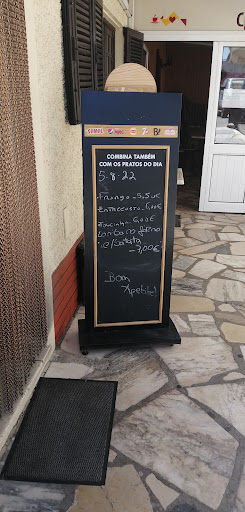 SUMOL
COMBINA TAMBÉM
COM OS PRATOS DO DIA
5-8-22
Frango - 5,5€
Entrecosto - 6,00€
Toucinho - 6,00€
Lombo no forno
c/ batata
- 7,00€
Bom
Apetite!